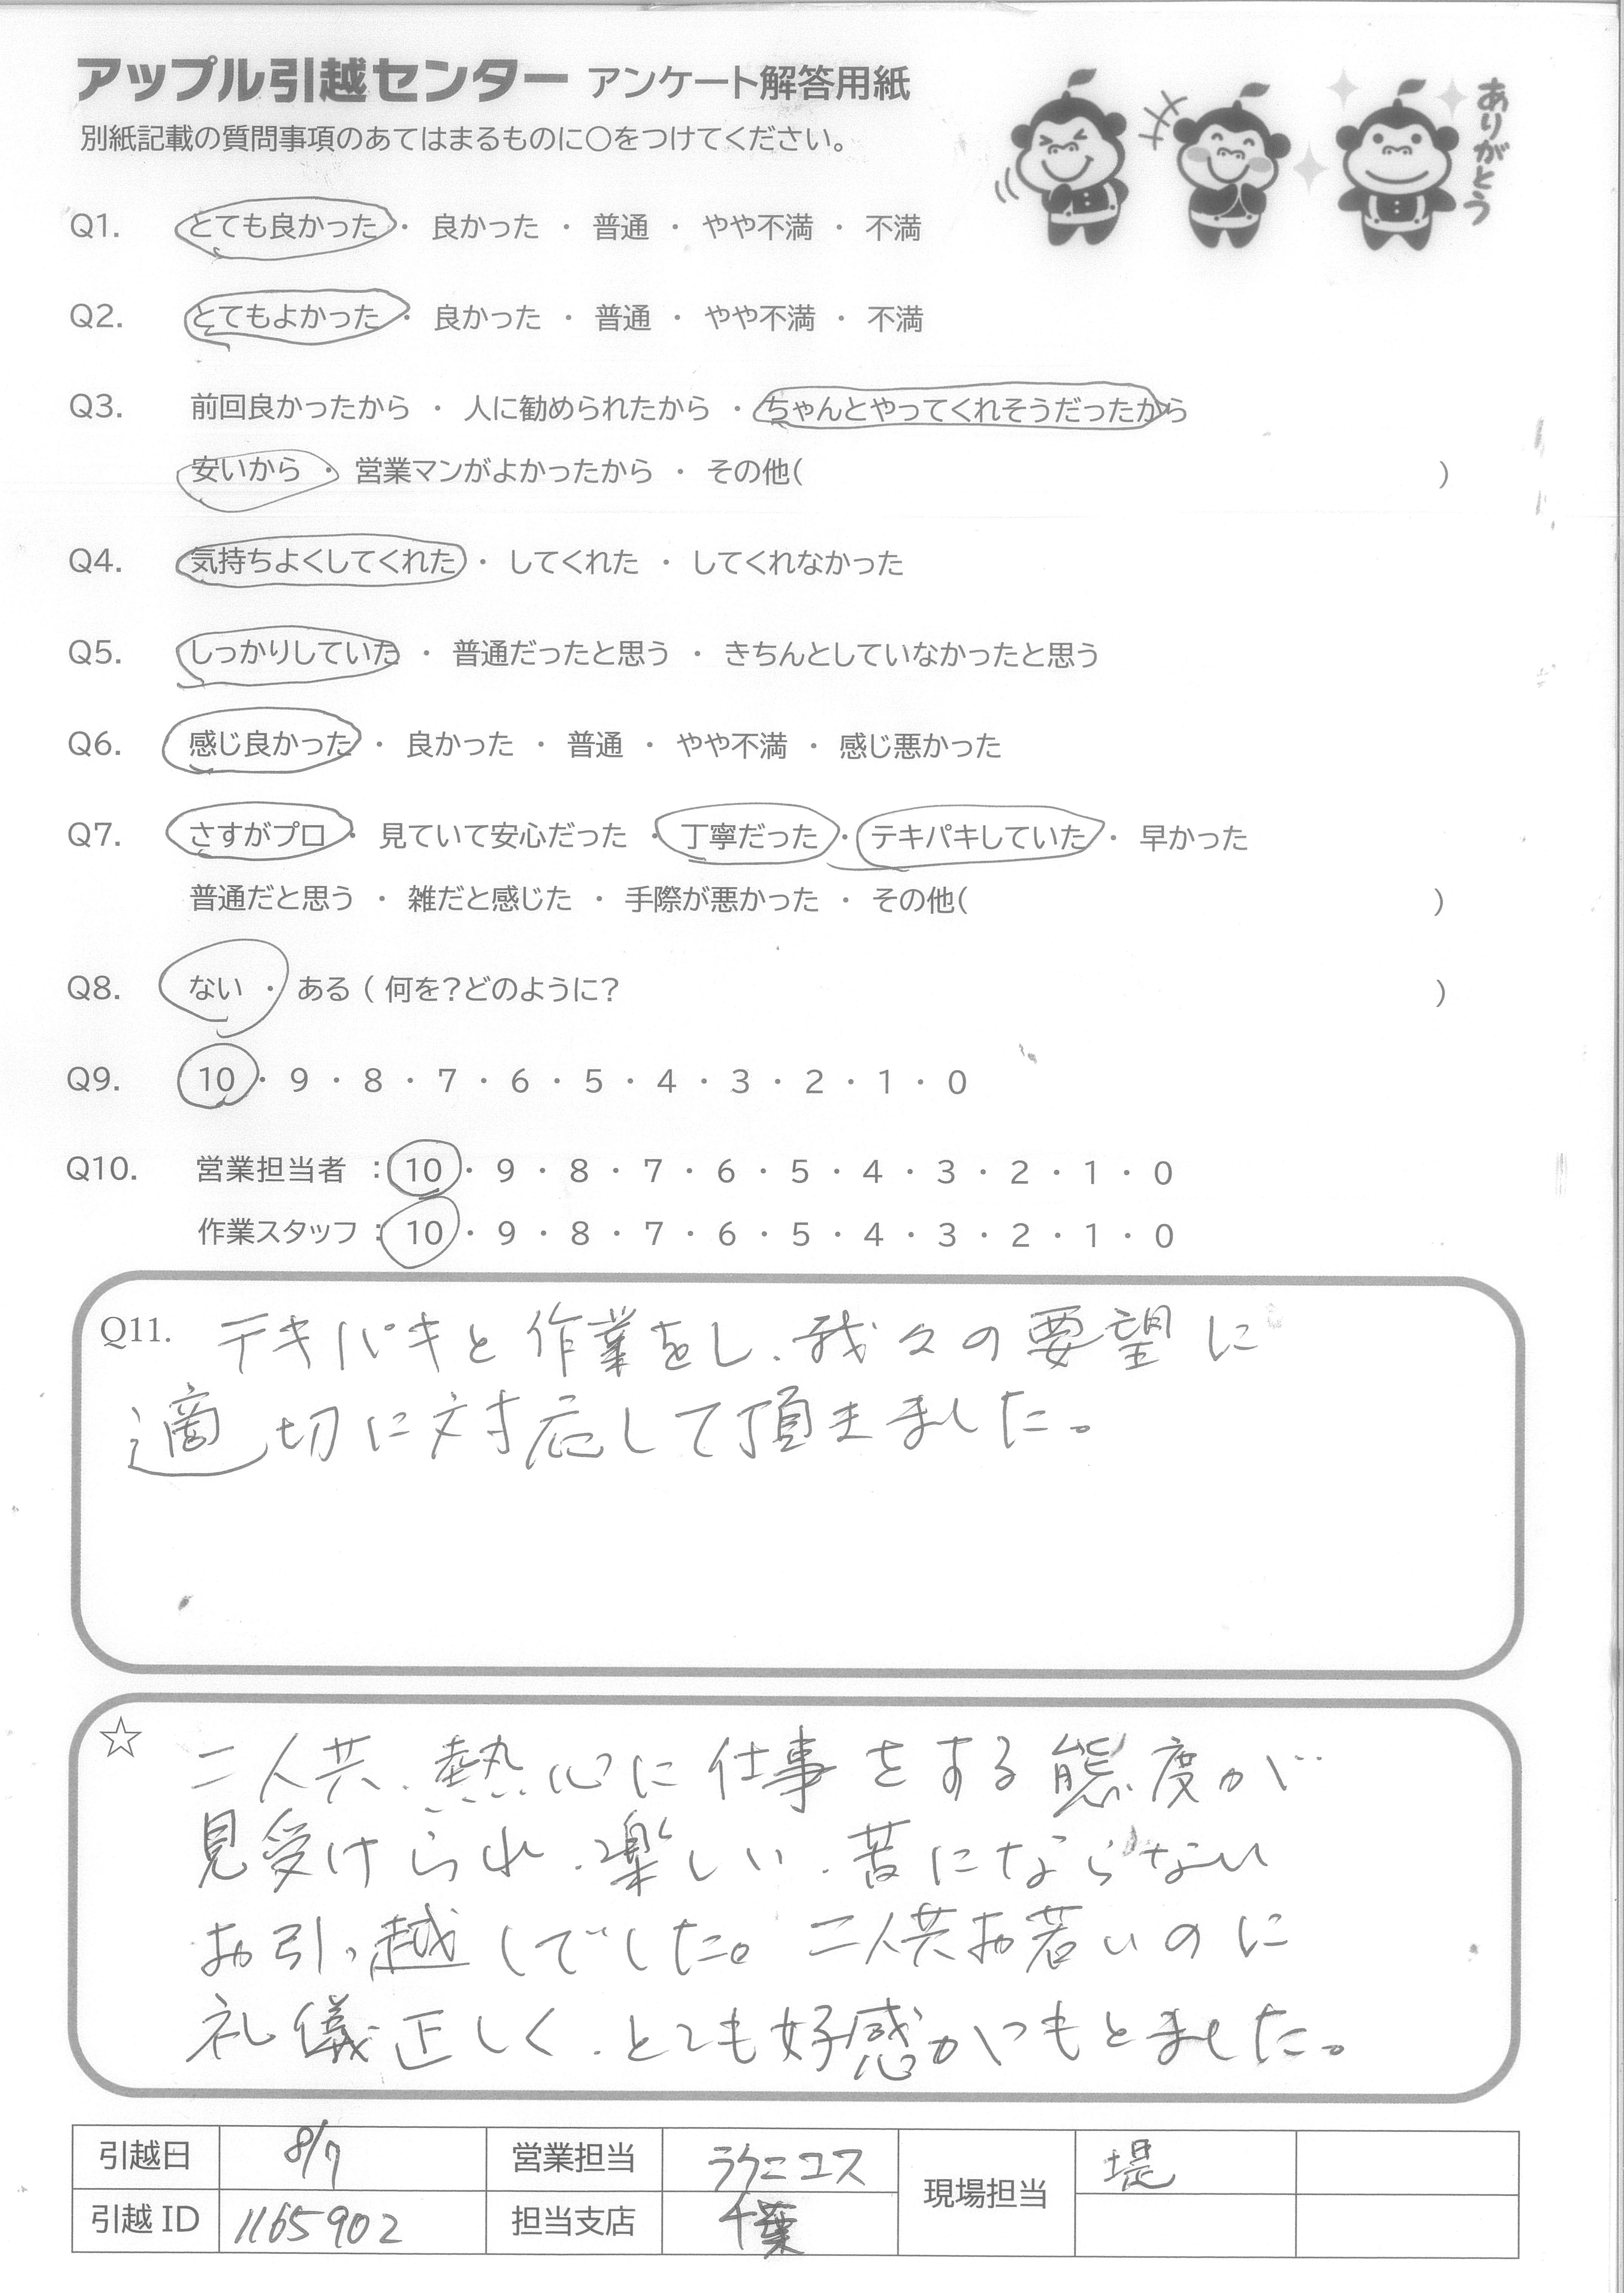 アップル引越センター アンケート解答用紙
別紙記載の質問事項のあてはまるものに〇をつけてください。
ありがとう
Q1. とても良かった ・ 良かった ・ 普通 ・ やや不満 ・ 不満
Q2. とてもよかった ・ 良かった ・ 普通 ・ やや不満 ・ 不満
Q3. 前回良かったから ・ 人に勧められたから ・ ちゃんとやってくれそうだったから
安いから ・ 営業マンがよかったから ・ その他( )
Q4. 気持ちよくしてくれた ・ してくれた ・ してくれなかった
Q5. しっかりしていた ・ 普通だったと思う ・ きちんとしていなかったと思う
Q6. 感じ良かった ・ 良かった ・ 普通 ・ やや不満 ・ 感じ悪かった
Q7. さすがプロ ・ 見ていて安心だった ・ 丁寧だった ・ テキパキしていた ・ 早かった
普通だと思う ・ 雑だと感じた ・ 手際が悪かった ・ その他( )
Q8. ない ・ ある ( 何を?どのように? )
Q9. 10 ・ 9 ・ 8 ・ 7 ・ 6 ・ 5 ・ 4 ・ 3 ・ 2 ・ 1 ・ 0
Q10. 営業担当者 : 10 ・ 9 ・ 8 ・ 7 ・ 6 ・ 5 ・ 4 ・ 3 ・ 2 ・ 1 ・ 0
作業スタッフ : 10 ・ 9 ・ 8 ・ 7 ・ 6 ・ 5 ・ 4 ・ 3 ・ 2 ・ 1 ・ 0
Q11. テキパキと作業をし、我々の要望に
適切に対応して頂きました。
☆ 二人共、熱心に仕事をする態度が
見受けられ、楽しい、苦にならない
お引っ越しでした。二人共お若いのに
礼儀正しく、とても好感がもてました。
引越日 8/7 営業担当 ラクニコス 現場担当 堤
引越ID 1165902 担当支店 千葉